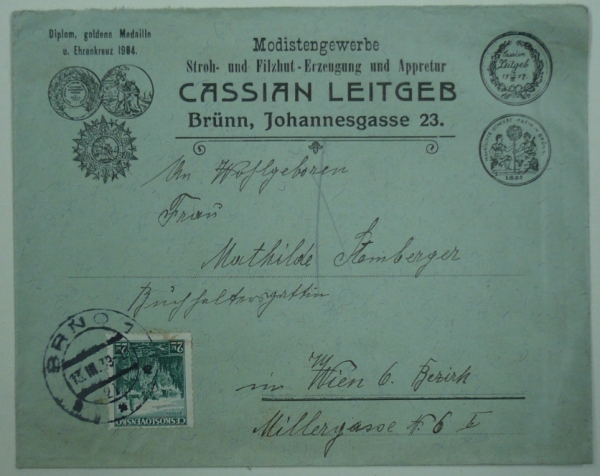 Diplom, goldene Medaille
u. Ehrenkreuz 1904.
Modistengewerbe
Stroh- und Filzhut-Erzeugung und Appretur
CASSIAN LEITGEB
Brünn, Johannesgasse 23.
Cassian
Leitgeb
1881
An Wohlgeboren
Frau
Mathilde Stemberger
Buchhaltersgattin
in Wien 6. Bezirk
Millergasse № 6 I
BRNO 1
13.III.39
2
ČESKOSLOVENSKO